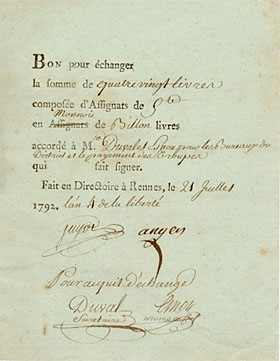 BON pour échanger
la somme de quatre vingt livres
composée d'Assignats de 5 lt
Monnoie
en Assignats de Billon livres
accordé à M. Duval et pour les Bureaux du
District et le payement des Troupes
qui fait signer.
Fait en Directoire à Rennes, le 21 Juillet
1792. l'an 4 de la liberté
Pour acquit d'échange
Duval
Secretaire